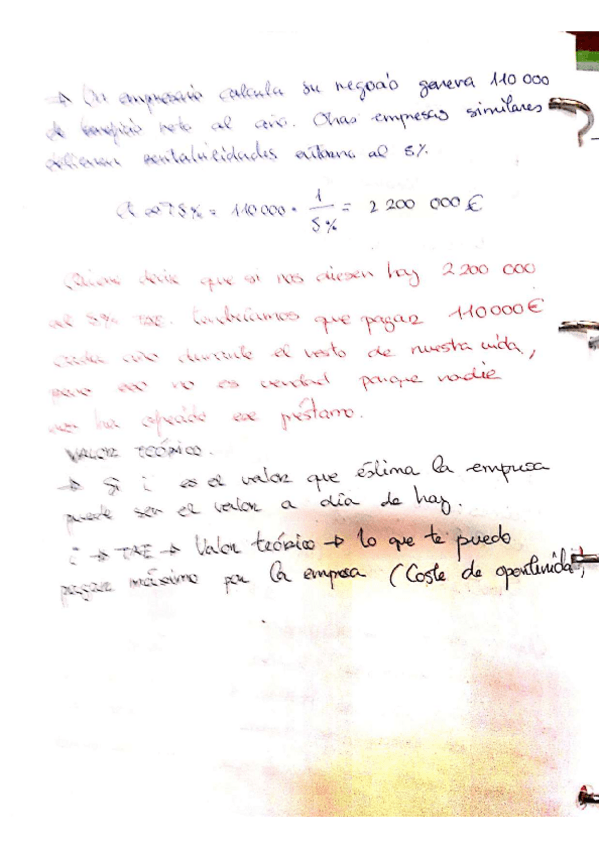 → Un empresario calcula su negocio genera 110 000
de beneficio neto al año. Otras empresas similares
obtienen rentabilidades entorno al 5%.
= 110000 · 1/5% = 2 200 000 €
Quiere decir que si nos diesen hoy 2 200 000
al 5% TAE. tendríamos que pagar 110000 €
cada año durante el resto de nuestra vida,
pero eso no es verdad porque nadie
nos ha ofrecido ese préstamo.
VALOR TEÓRICO.
→ Si i es el valor que éstima la empresa
puede ser el valor a día de hoy.
i → TAE → Valor teórico → lo que te puedo
pagar máximo por la empresa (Coste de oportunidad)